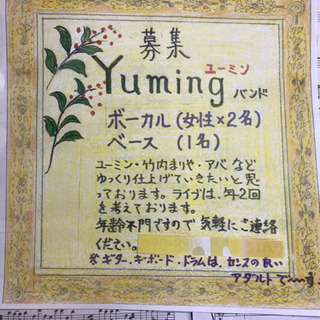 募集
ユーミン
Yuming バンド
ボーカル (女性×2名)
ベース (1名)
ユーミン・竹内まりや・アバ など
ゆっくり仕上げていきたいと思
っております。ライブは、年2回
を考えております。
年齢不問ですので 気軽にご連絡
ください。
※ギター、キーボード・ドラムは、センスの良い
アダルトで〜す。